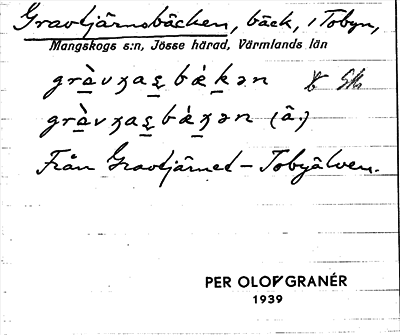 Gravtjärnsbäcken, bäck, i Tobyn,
Mangskogs s:n, Jösse härad, Värmlands län
grὰvʒas̠bάk̠ən
grὰvʒas̠bάʒ̠ən (ä.)
Från Gravtjärnet – Tobyälven.
PER OLOF GRANÉR
1939